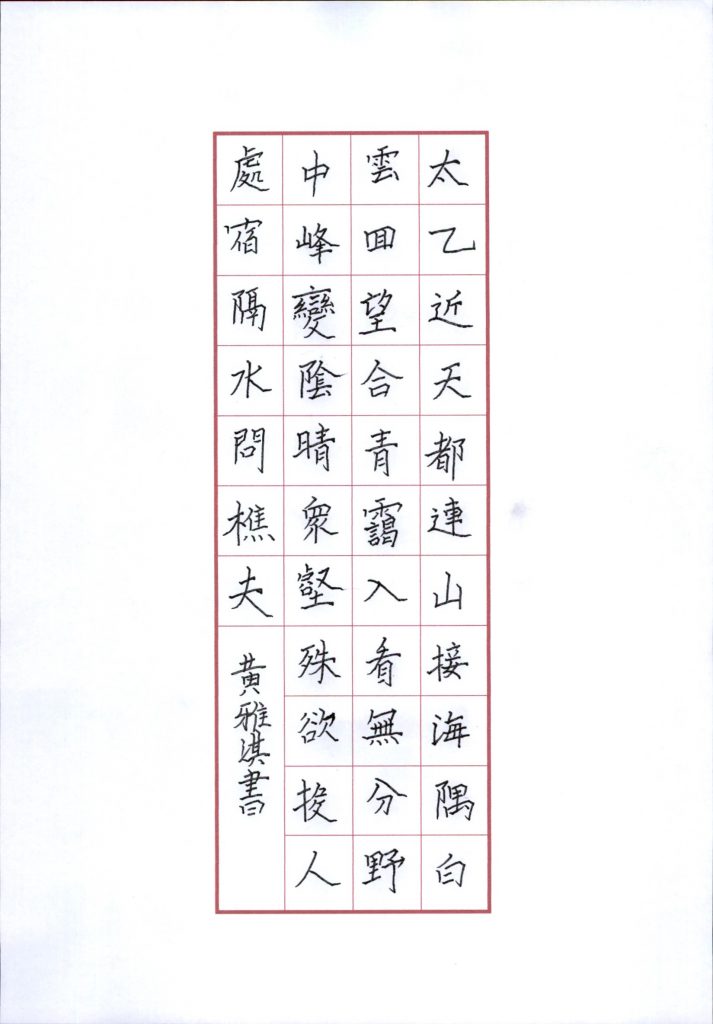 太乙近天都連山接海隅白
雲回望合青靄入看無分野
中峰變陰晴衆壑殊欲投人
處宿隔水問樵夫
黃雅淇書